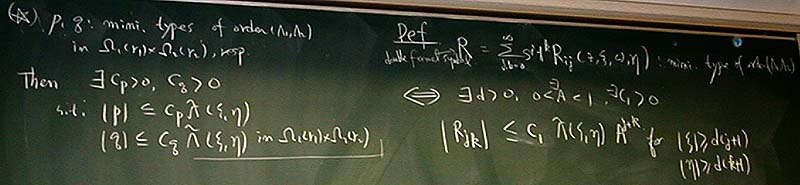 (☆) p, q : mini. types of order (Λ₁,Λ₂)
in Ω₁(r₁)×Ω₂(r₂), resp.
Then ∃ Cp>0, Cq>0
s.t. |p| ≤ Cp Λ̃(ξ,η)
|q| ≤ Cq Λ̃(ξ,η) in Ω₁(r₁)×Ω₂(r₂)
Def
double formal symbol R = Σ_{j,k=0}^∞ s^j t^k R_{ij}(z,ξ,ω,η) : mini. type of order (Λ₁,Λ₂)
⟺ ∃d>0, 0<∃A<1, ∃C₁>0
|R_{jk}| ≤ C₁ Λ̃(ξ,η) A^{j+k} for |ξ|≥d(j+1)
|η|≥d(k+1)